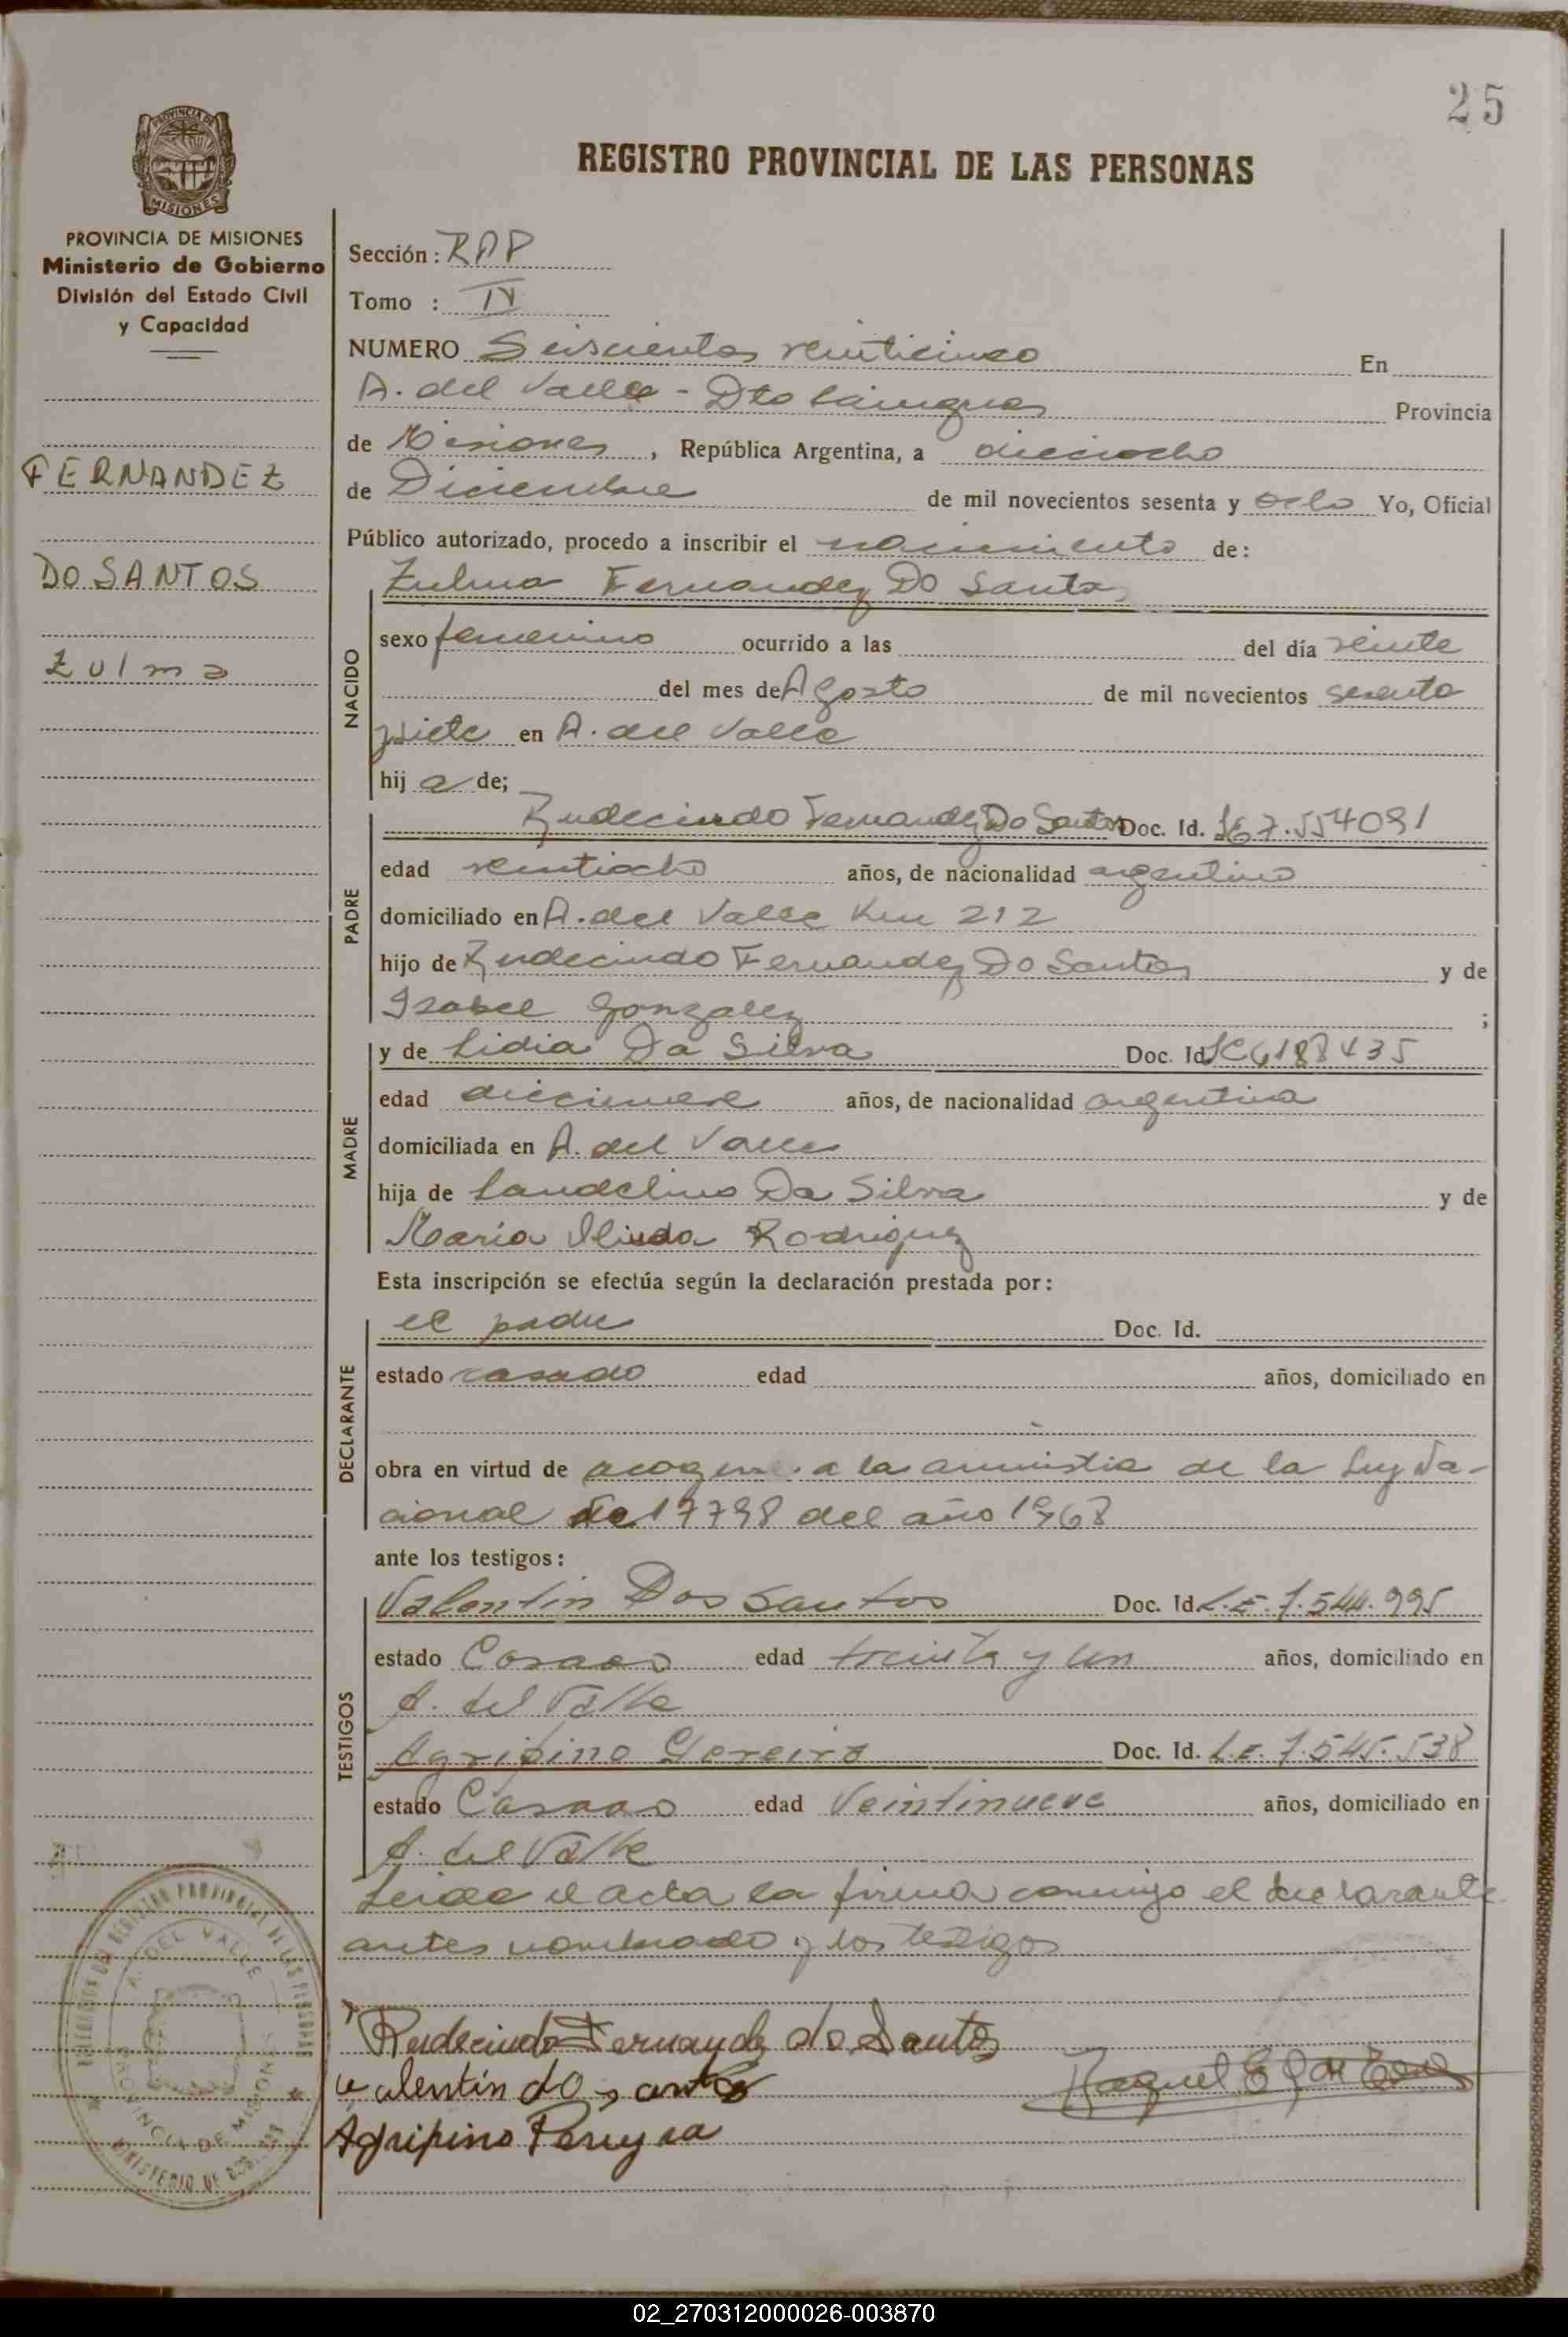 25
PROVINCIA DE MISIONES
REGISTRO PROVINCIAL DE LAS PERSONAS
PROVINCIA DE MISIONES
Ministerio de Gobierno
División del Estado Civil
y Capacidad
FERNANDEZ
DO SANTOS
Zulma
Sección:
Tomo : IV
NUMERO Seiscientos veinticinco En
A. del Valle - Dto Cainguas Provincia
de Misiones, República Argentina, a dieciocho
de Diciembre de mil novecientos sesenta y ocho Yo, Oficial
Público autorizado, procedo a inscribir el nacimiento de:
Zulma Fernandez Do Santos
NACIDO
sexo femenino ocurrido a las del día veinte
del mes de Agosto de mil novecientos sesenta
y siete en A. del Valle
hija de;
PADRE
Rudecindo Fernandez Do Santos Doc. Id. LE 7.554091
edad veintiocho años, de nacionalidad argentino
domiciliado en A. del Valle Km 212
hijo de Rudecindo Fernandez Do Santos y de
Isabel Gonzalez ;
MADRE
y de Lidia Da Silva Doc. Id LC 6188435
edad diecinueve años, de nacionalidad argentina
domiciliada en A. del Valle
hija de Laudelino Da Silva y de
María Rodriguez
Esta inscripción se efectúa según la declaración prestada por:
DECLARANTE
el padre Doc. Id.
estado casado edad años, domiciliado en
obra en virtud de acogerse a la amnistia de la Ley Na-
cional 17798 del año 1968
ante los testigos:
TESTIGOS
Valentin Dos Santos Doc. Id L.E. 7.544.995
estado Casado edad treinta y un años, domiciliado en
A. del Valle
Agripino Pereira Doc. Id. L.E. 7.545.538
estado Casado edad Veintinueve años, domiciliado en
A. del Valle
Leida el acta la firma conmigo el declarante
antes nombrado y los testigos
Rudecindo Fernandez do Santos
Valentin do santos
Agripino Pereyra
DEL REGISTRO PROVINCIAL DE LAS PERSONAS
A. DEL VALLE
PROVINCIA DE MISIONES
MINISTERIO DE
02_270312000026-003870